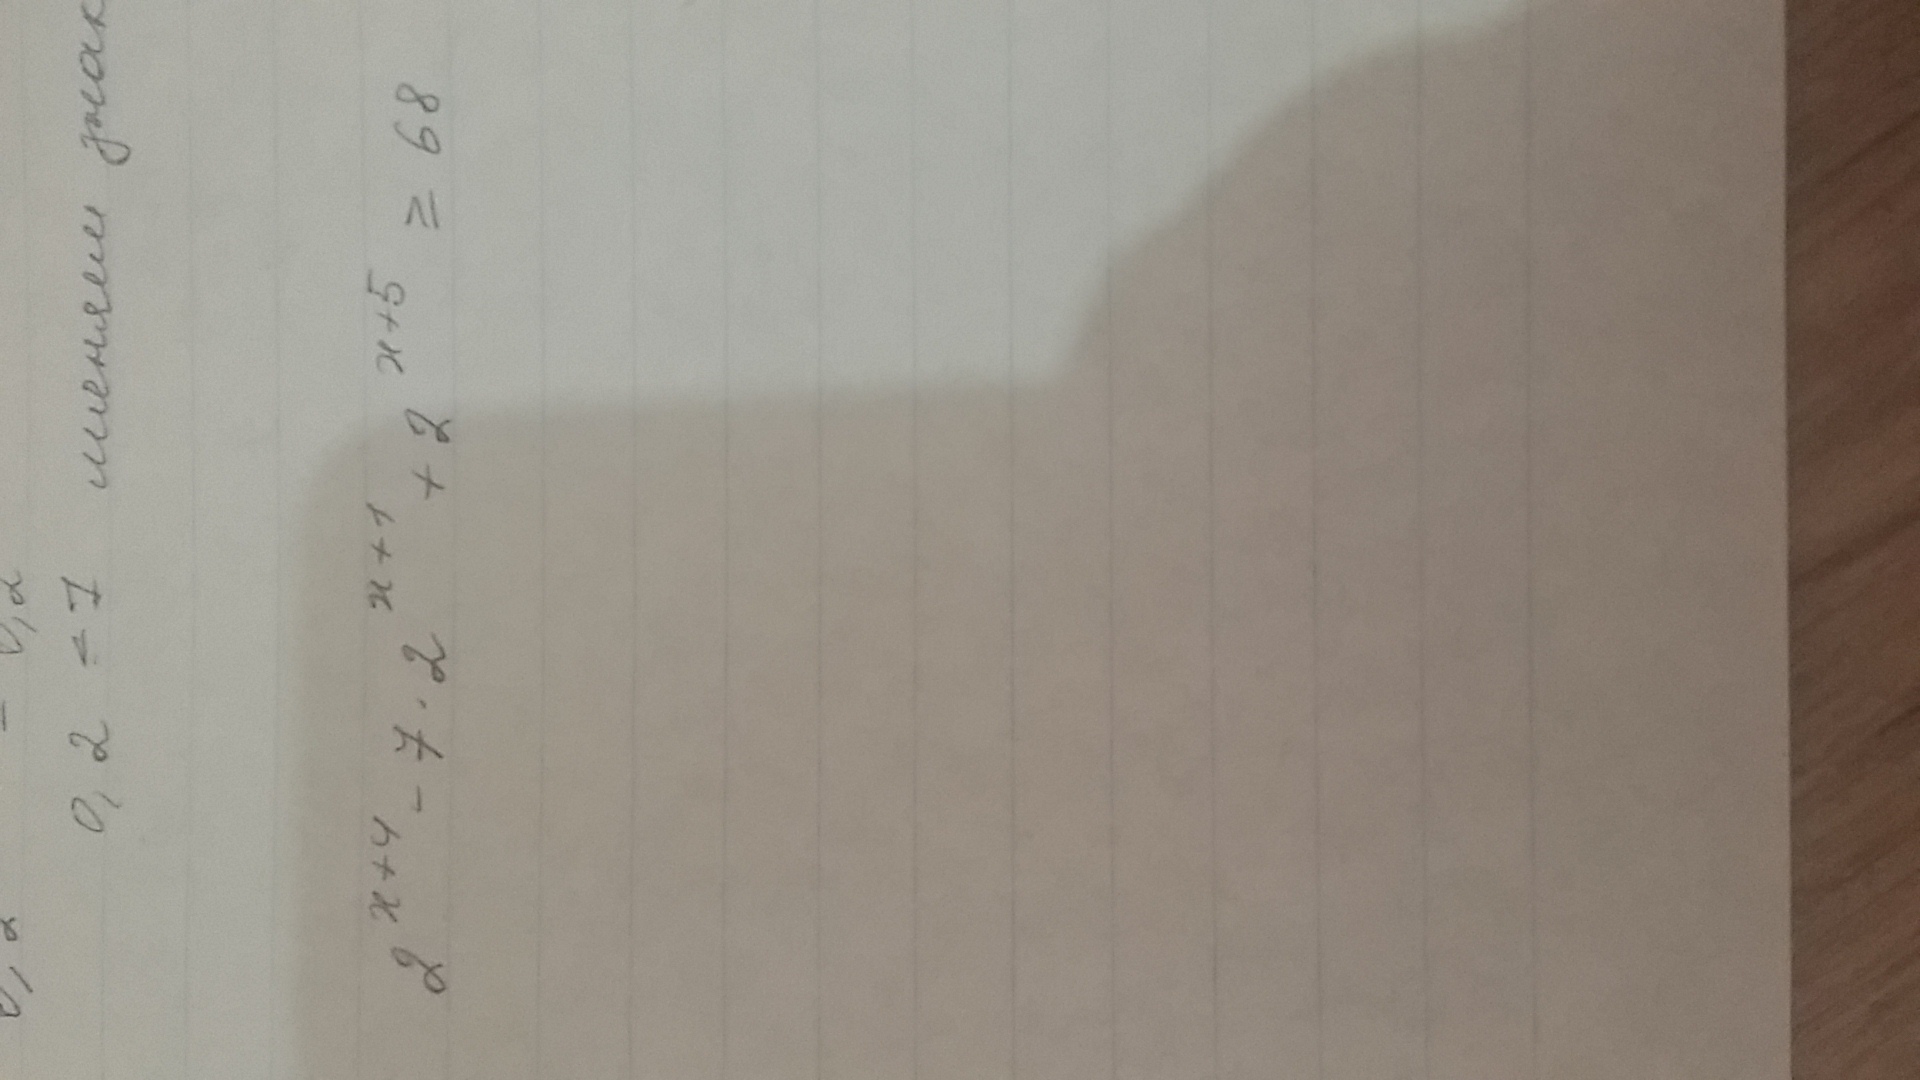 = 0,2
0,2 < 7 меняем знак
2^{x+4} - 7 · 2^{x+1} + 2^{x+5} ≥ 68